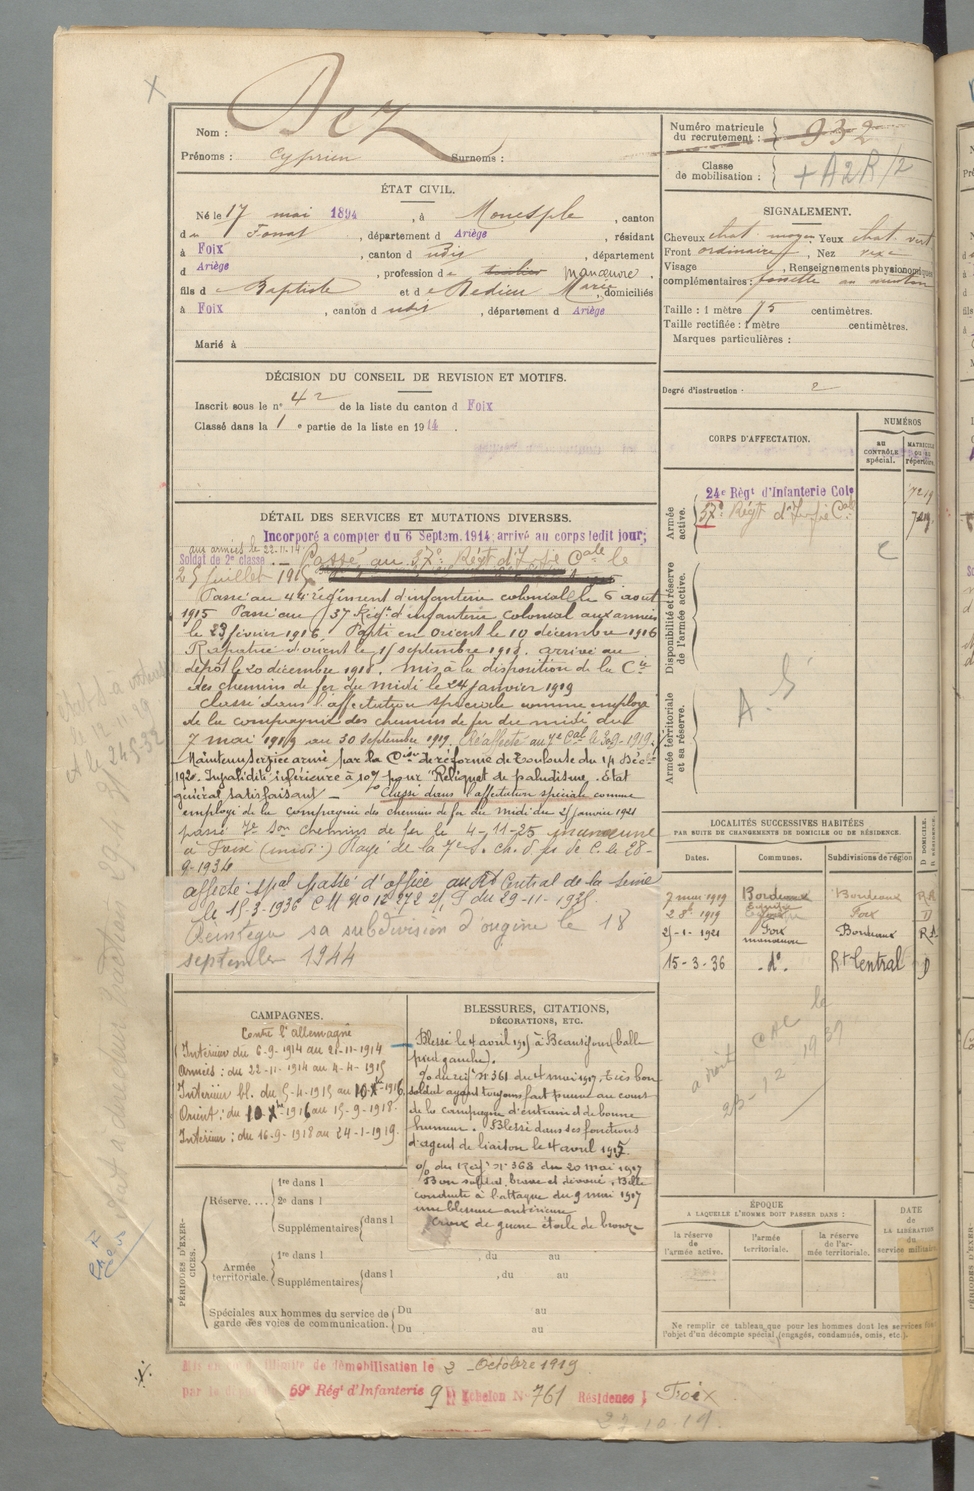 Nom : Dez
Prénoms : Cyprien Surnoms :
Numéro matricule du recrutement : 932
Classe de mobilisation : + A2R/2
ÉTAT CIVIL.
Né le 17 mai 1894, à Monesple, canton
du Fossat, département d Ariège, résidant
à Foix, canton d udis, département
d Ariège, profession de manœuvre.
fils d Baptiste et de Dedieu Marie, domiciliés
à Foix, canton d udis, département d Ariège
Marié à
SIGNALEMENT.
Cheveux chat. moyen. Yeux chat. vert
Front ordinaire, Nez
Visage, Renseignements physionomiques
complémentaires : fossette au menton
Taille : 1 mètre 75 centimètres.
Taille rectifiée : 1 mètre centimètres.
Marques particulières :
Degré d'instruction : 2
DÉCISION DU CONSEIL DE REVISION ET MOTIFS.
Inscrit sous le n° 42 de la liste du canton d Foix
Classé dans la 1 e partie de la liste en 1914.
CORPS D'AFFECTATION.
NUMÉROS
AU CONTRÔLE spécial.
MATRICULE ou au répertoire.
Armée active.
24e Régt d'Infanterie Cole 7219
37e Régt d'Infie Cale
Disponibilité et réserve de l'armée active.
Armée territoriale et sa réserve.
A. S
DÉTAIL DES SERVICES ET MUTATIONS DIVERSES.
Incorporé a compter du 6 Septem. 1914, arrivé au corps ledit jour;
aux armées le 22-11-14
Soldat de 2e classe. — Passé au 37e Régt d'Infie Cale le
25 juillet 1915
Passé au 44e régiment d'infanterie coloniale le 6 août
1915 Passé au 37 Régt d'infanterie colonial aux armées
le 23 février 1916. Parti en Orient le 10 décembre 1916
Rapatrié d'orient le 15 septembre 1918. arrivé au
dépôt le 20 décembre 1918. mis à la disposition de la Cie
des chemins de fer du midi le 24 janvier 1919
Classé dans l'affectation spéciale comme employé
de la compagnie des chemins de fer du midi du
7 mai 1919 au 30 septembre 1919. Réaffecté au 7e Cal le 30-9-1919.
Maintenu service armé par la Cion de réforme de Toulouse du 14 Déc
1920. Invalidité inférieure à 10% pour Reliquat de paludisme. état
général satisfaisant — Classé dans l'affectation spéciale comme
employé de la compagnie des chemins de fer du midi du 25 janvier 1921
passé 7e Son chemins de fer le 4-11-25 manœuvre
à Foix (midi) Rayé de la 7e S. ch. d fer de C. le 28-
9-1936
affecté spal passé d'office au Rt Central de la Seine
le 15-3-1936 CM No 12272 du 29-11-1935.
Réintégré sa subdivision d'origine le 18
septembre 1944
LOCALITÉS SUCCESSIVES HABITÉES
PAR SUITE DE CHANGEMENTS DE DOMICILE OU DE RÉSIDENCE.
Dates. Communes. Subdivisions de région D DOMICILE. R RÉSIDENCE.
7 mai 1919 Bordeaux Bordeaux RR
1919 Foix D
25-1-1921 Foix manœuvre Bordeaux RR
15-3-36 -do- Rt Central D
CAMPAGNES.
Contre l'allemagne
Intérieur du 6-9-1914 au 21-11-1914
Armées : du 22-11-1914 au 4-4-1915
Intérieur bl. du 5-4-1915 au 10-Xbre-1916
Orient : du 10-Xbre-1916 au 15-9-1918.
Intérieur : du 16-9-1918 au 24-1-1919.
BLESSURES, CITATIONS,
DÉCORATIONS, ETC.
Blessé le 4 avril 1915 à Beauséjour (balle
pied gauche).
% du régt n° 361 du 4 mai 1917, très bon
soldat ayant toujours fait preuve au cours
de la campagne d'entrain et de bonne
humeur. Blessé dans ses fonctions
d'agent de liaison le 4 avril 1915.
% du Régt n° 368 du 20 mai 1917
Bon soldat, brave et dévoué. Belle
conduite à l'attaque du 9 mai 1917
une blessure antérieure
Croix de guerre étoile de bronze
PÉRIODES D'EXERCICES.
Réserve....
1re dans l
2e dans l
Supplémentaires dans l
Armée territoriale.
1re dans l , du au
Supplémentaires dans l , du au
Spéciales aux hommes du service de garde des voies de communication.
Du au
Du au
ÉPOQUE
A LAQUELLE L'HOMME DOIT PASSER DANS :
la réserve de l'armée active.
l'armée territoriale.
la réserve de l'armée territoriale.
DATE de LA LIBÉRATION du service militaire.
Ne remplir ce tableau que pour les hommes dont les services font
l'objet d'un décompte spécial (engagés, condamnés, omis, etc.).
démobilisation le 2 Octobre 1919
59e Régt d'Infanterie 9 Echelon N° 761 Résidence Foix
27.10.19.